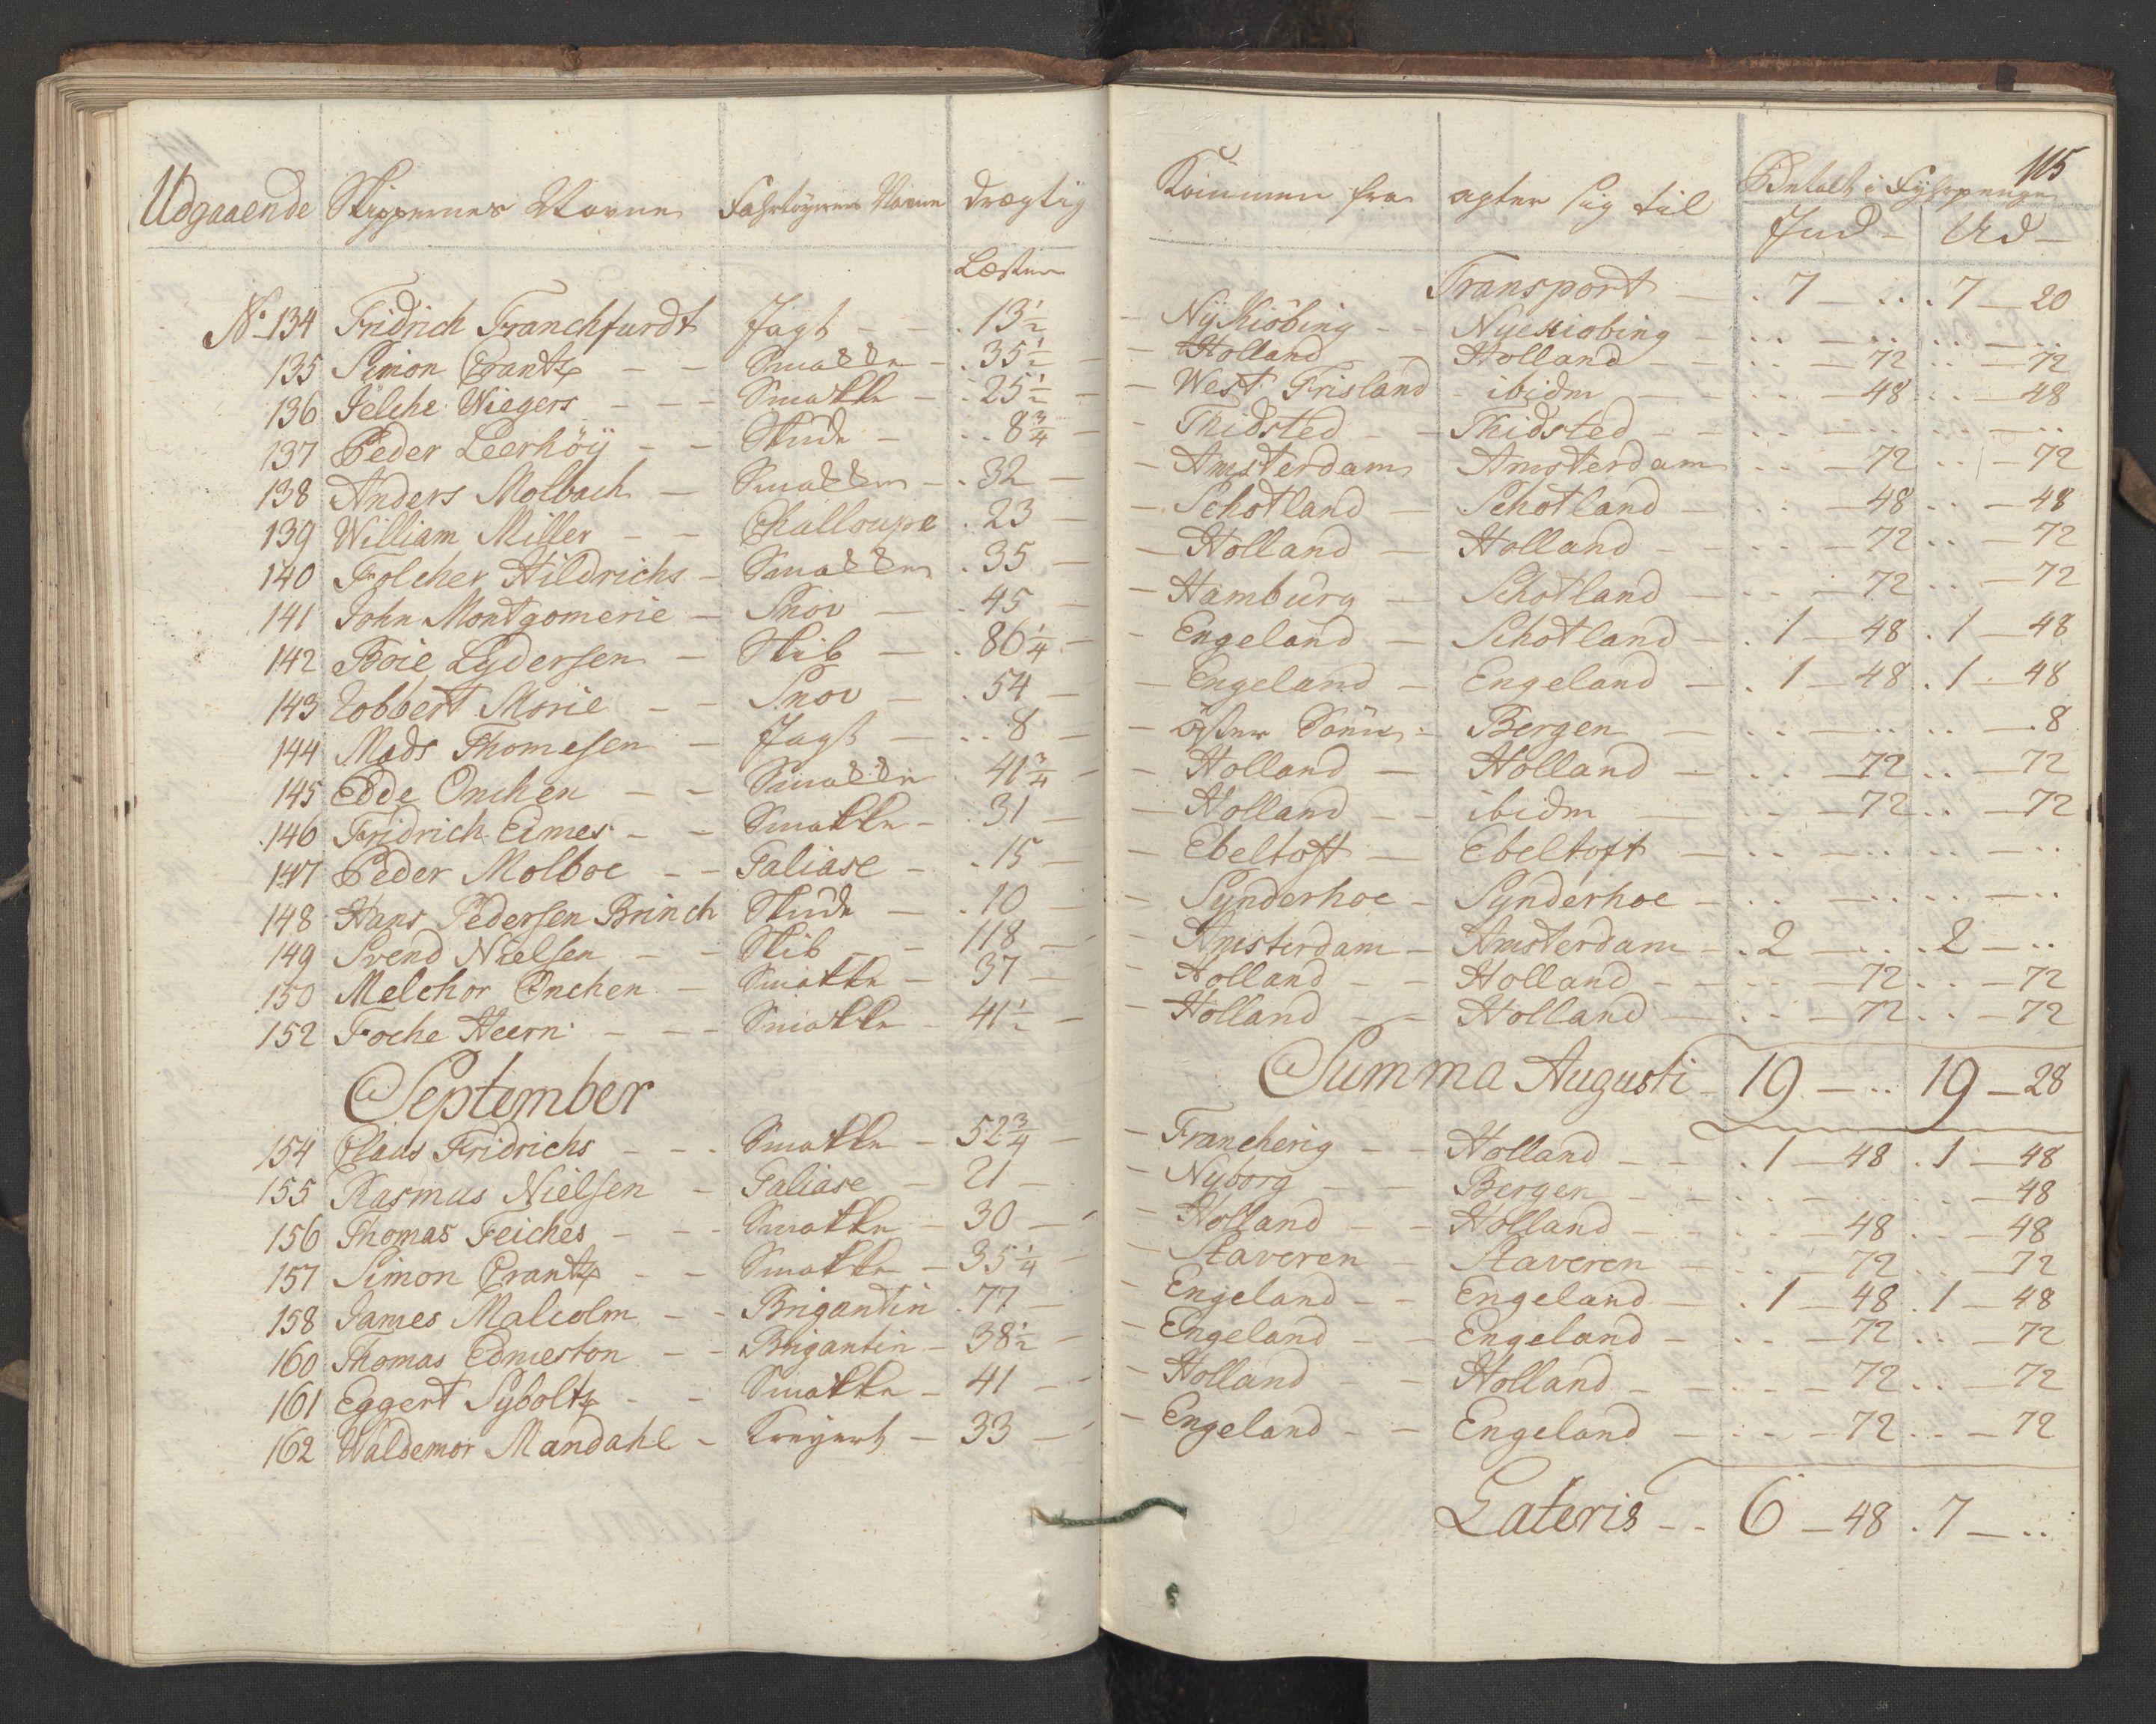 115
Udgaaende Skippernes Navne Fahrtøyernes Navne Drægtig Kommen fra agter sig til Betalt i Fyhrpenge
Læster Ind – Ud –
Transport – . 7 – .. . 7 – 20
No. 134 Fridrich Franchfurdt Jagt – – . 13 1/2 – NyKiöbing – – NyeKiobing – .. – .. .. – ..
135 Simon Crantz – – Smakke – . 35 1/2 – Holland – – Holland – .. – 72 .. – 72
136 Jelche Wiegers – – – Smakke – . 25 1/2 – West Frisland – ibidm – .. – 48 .. – 48
137 Peder Leerhöÿ – – Skude – .. 8 3/4 – Thidsted – – Thidsted – – .. – .. .. – ..
138 Anders Molbach – Smakke – . 32 – Amsterdam Amsterdam .. – 72 .. – 72
139 William Miller – – Challoupe . 23 – Schotland – Schotland – .. – 48 .. – 48
140 Folcher Hildrichs – Smakke . 35 – Holland – Holland – .. – 72 .. – 72
141 John Montgomerie – Snov – . 45 – Hamburg – Schotland – .. – 72 .. – 72
142 Boie Lydersen – Skib – . 86 1/4 – Engeland – Schotland – . 1 – 48 . 1 – 48
143 Robbert Morie – – Snov – . 54 – Engeland – Engeland – . 1 – 48 . 1 – 48
144 Mads Thomesen – Jagt – .. 8 – Bergen – .. – .. .. – . 8
145 Edde Onchen – – Smakke . 41 3/4 – Holland – Holland – .. – 72 .. – 72
146 Fridrich Eimes – – Smakke – . 31 – Holland – – ibidm – .. – 72 .. – 72
147 Peder Molboe – – Galiase – . 15 – Ebeltoft – Ebeltoft – .. – .. .. – ..
148 Hans Pedersen Brinch Skude – . 10 – Synderhoe – Synderhoe – .. – .. .. – ..
149 Svend Nielsen – – Skib – – 118 – Amsterdam – Amsterdam – . 2 – .. . 2 – ..
150 Melchor Onchen – Smakke – 37 – Holland – – Holland – .. – 72 .. – 72
152 Foche Heern – – – Smakke – 41 1/2 – Holland – – Holland – .. – 72 .. – 72
Summa Augusti – 19 – .. 19 – 28
September
154 Claus Fridrichs – – – Smakke – 52 3/4 – Francherig – – Holland – – . 1 – 48 . 1 – 48
155 Rasmus Nielsen – Galiase – 21 – Nyborg – – Bergen – – .. – .. .. – 48
156 Thomas Feiches – – – Smakke – 30 – Holland – – Holland – .. – 48 .. – 48
157 Simon Crantz – – Smakke – 35 1/4 – Staveren – Staveren – .. – 72 .. – 72
158 James Malcolm – – Brigantin . 77 – Engeland – – Engeland – . 1 – 48 . 1 – 48
160 Thomas Edmeston – – Brigantin – 38 1/2 – Engeland – – Engeland – .. – 72 .. – 72
161 Eggert Syboltz – – Smakke – 41 – Holland – – Holland – .. – 72 .. – 72
162 Waldemor Mandahl – Kreyert – 33 – Engeland – – Engeland – .. – 72 .. – 72
Lateris – – 6 – 48 . 7 – ..